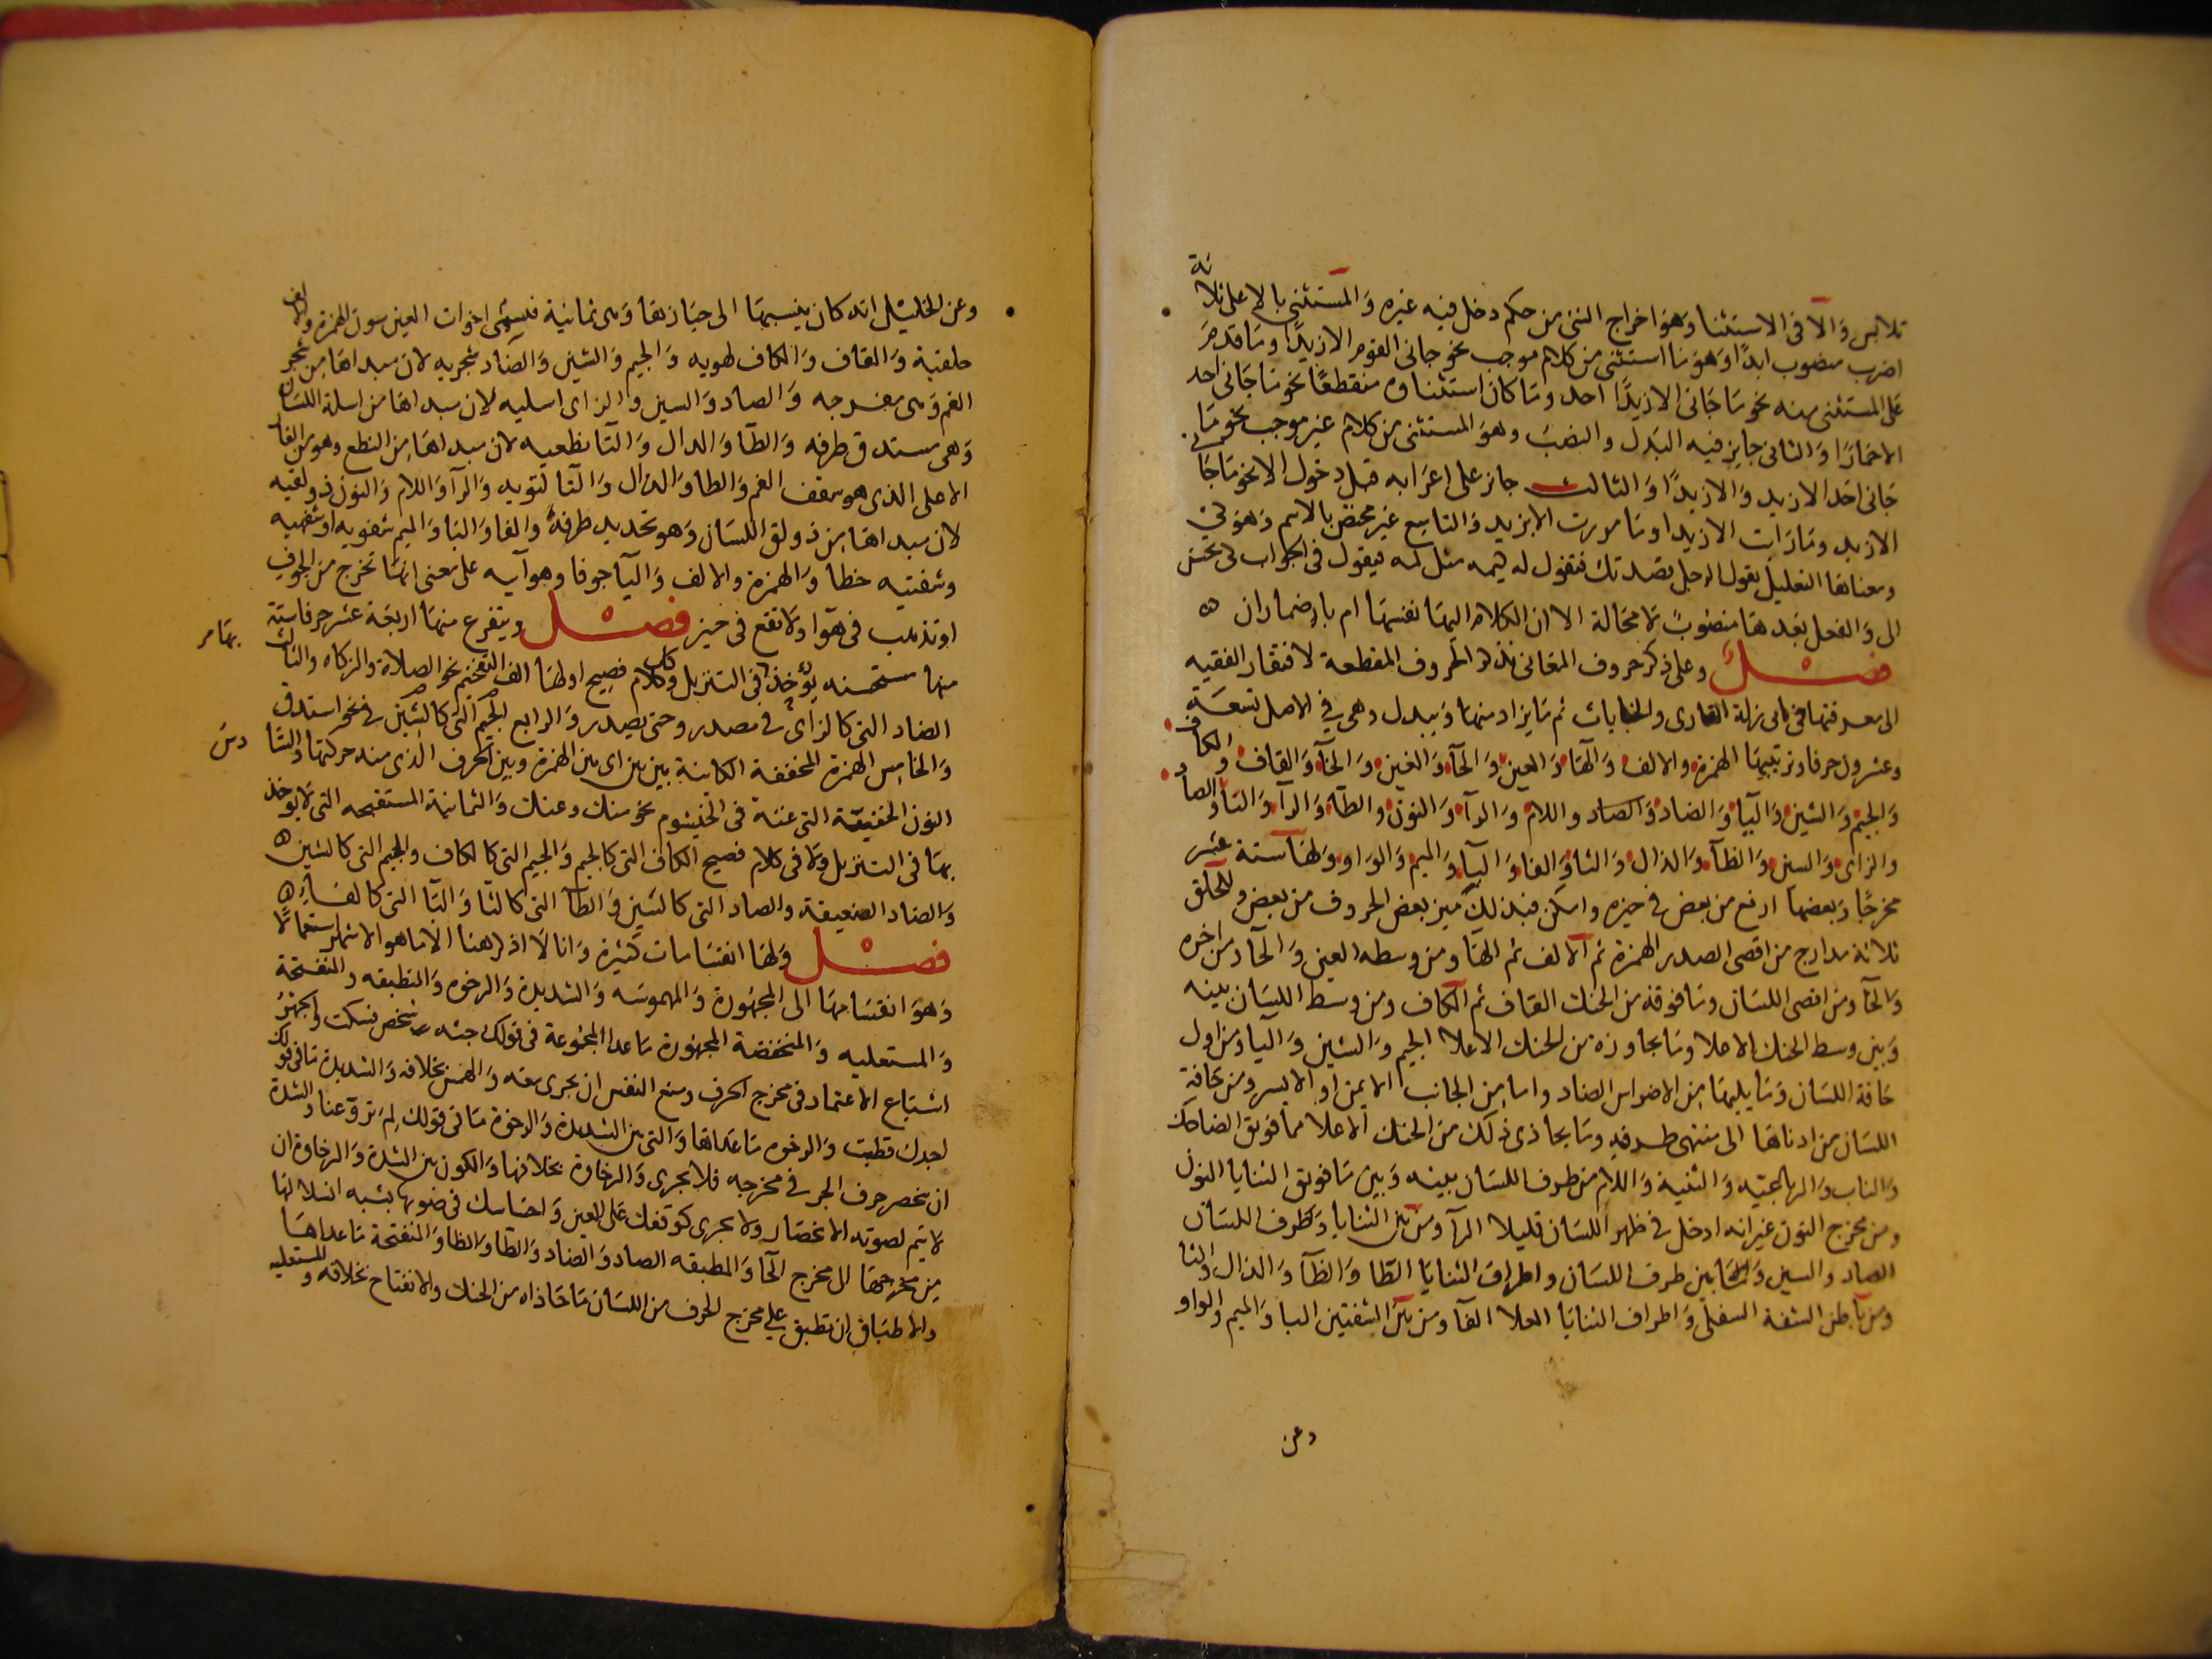 تلابس والا فى الاستثنا وهو اخراج الشئ من حكم دخل فيه غيره والمستثنى بالا على ثلاثة
اضرب منصوب ابدًا وهو ما استثنى من كلام موجب نحو جانى القوم الا زيدًا وما قدم
على المستثنى منه نحو ما جانى الا زيدًا احد وما كان استثناوه منقطعًا نحو ما جانى احد
الا حمارًا والثانى جايز فيه البدل والنصب وهو المستثنى من كلام غير موجب نحو ما
جانى احد الا زيد والا زيدًا والثالث جاز على اعرابه قبل دخول الا نحو ما جانى
الا زيد وما رات الا زيدا وما مررت الا بزيد والتاسع غير مختص بالاسم وهو كى
ومعناها التعليل يقول الرجل قصدتك فتقول له كيمه مثل لمه فيقول فى الجواب كى تحسن
الى والفعل بعدها منصوبٌ لا محالة الا ان الكلام اليها نفسها ام باضمار ان ه
فصل وعلى ذكر حروف المعانى نذكر الحروف المقطعة لافتقار الفقيه
الى معرفتها فى بابى زلة القارى والجنايات ثم ما يزاد منها ويبدل وهى فى الاصل تسعة
وعشرون حرفا وترتيبها الهمزة والالف والها والعين والحا والغين والخا والقاف والكاف
والجيم والشين واليا والضاد والصاد واللام والرا والنون والطا والرا والتا والصاد
والزاى والسين والظا والذال والثا والفا والبا والميم والواو ولها ستة عشر
مخرجًا وبعضها ارفع من بعض فى حيزه وامكن فبذلك ميز بعض الحروف من بعض وللحلق
ثلاثة مدارج من اقصى الصدر الهمزة ثم الالف ثم الها ومن وسطه العين والحا ومن اخره
والخا ومن اقصى اللسان وما فوقه من الحنك القاف ثم الكاف ومن وسط اللسان بينه
وبين وسط الحنك الاعلا وما يجاوزه من الحنك الاعلا الجيم والشين واليا ومن اول
حافة اللسان وما يليها من الاضراس الضاد واما من الجانب الايمن او الايسر ومن حافة
اللسان من ادناها الى منتهى طرفه وما يحاذى ذلك من الحنك الاعلا مما فويق الضاحك
والناب والرباعيه والثنية واللام من طرف اللسان بينه وبين ما فويق الثنايا النون
ومن مخرج النون غير انه ادخل فى ظهر اللسان قليلا الرا ومن بين الثنايا وطرف اللسان
الصاد والسين ومما بين طرف اللسان واطراف الثنايا الظا والظا والذال والثا
ومن باطن الشفة السفلى واطراف الثنايا العلا الفا ومن بين الشفتين البا والميم والواو
وعن
وعن الخليل انه كان ينسبها الى حيازها وهى ثمانية فسمى اخوات العين سوى الهمزة والالف
حلقية والقاف والكاف لهويه والجيم والشين والضاد شجريه لان مبداها من شجر
الفم وهى مفرجه والصاد والسين والزاى اسليه لان مبداها من اسلة اللسان
وهى مستدق طرفه والطا والدال والتا نطعيه لان مبداها من النطع وهو من الغار
الاعلى الذى هو سقف الفم والظا والذال والثا لثويه والرا واللام والنون ذولقيه
لان مبداها من ذولق اللسان وهو تحديد طرفه والفا والبا والميم شفويه او شفهيه
وشفتيه خطا والهمزة والالف واليا جوفا وهوآيه على معنى انها تخرج من الجوف
او تذهب فى هوآ ولا تقع فى حيز فصل ويتفرع منها اربعة عشر حرفا ستة
منها مستحسنه يؤخذ بها فى التنزيل وكل كلام فصيح اولها الف التفخيم نحو الصلاة والزكاه والثالث
الصاد التى كالزاى فى مصدر وحتى يصدر والرابع الجيم التى كالشين فى نحو استدق
والخامس الهمزة المخففة الكاينة بين بين اى بين الهمزة وبين الحرف الذى منه حركتها والسادس
النون الخفيفة التى غنة فى الخيشوم نحو منك وعنك والثمانية المستقبحه التى لا يوخذ
بها فى التنزيل ولا فى كلام فصيح الكاف التى كالجيم والجيم التى كالكاف والجيم التى كالشين ه
والضاد الضعيفة والصاد التى كالسين والطا التى كالتا والبا التى كالفاء ه
فصل ولها انقسامات كثيرة وانا لا اذكر هنا الا ما هو الاشهر استعمالًا
وهو انقسامها الى المجهورة والمهموسه والشديدة والرخوه والمطبقه والمنفتحة
والمستعليه والمنخفضة المجهورة ما عدا المجموعة فى قولك حثه شخص فسكت والجهر
اشباع الاعتماد فى مخرج الحرف ومنع النفس ان يجرى معه والهمس بخلافه والشديدة ما فى قولك
اجدك قطبت والرخوه ما عداها والتى بين الشديدة والرخوة ما فى قولك لم تروعنا والشدة
ان ينحصر حرف الجر فى مخرجه فلا يجرى والرخاوة بخلافها والكون بين الشدة والرخاوة ان
لا يتم لصوته الانحصار ولا يجرى كوقفك على العين واحساسك فى صوتها بشبه انسلالها
من مخرجها الى مخرج الحا والمطبقه الصاد والضاد والطا والظا والمنفتحة ما عداها
والاطباق ان تطبق على مخرج الحرف من اللسان ما حاذاه من الحنك والانفتاح بخلافه والمستعليه